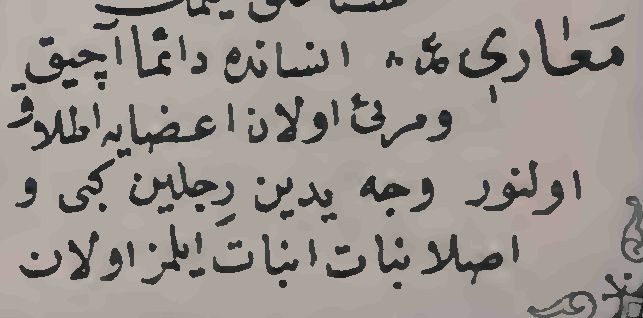 مَعَارِي انسانده دائما آچيق
ومرئی اولان اعضايه اطلاق
اولنور وجه يدين رِجلين كبى و
اصلا نبات انبات ايلمز اولان